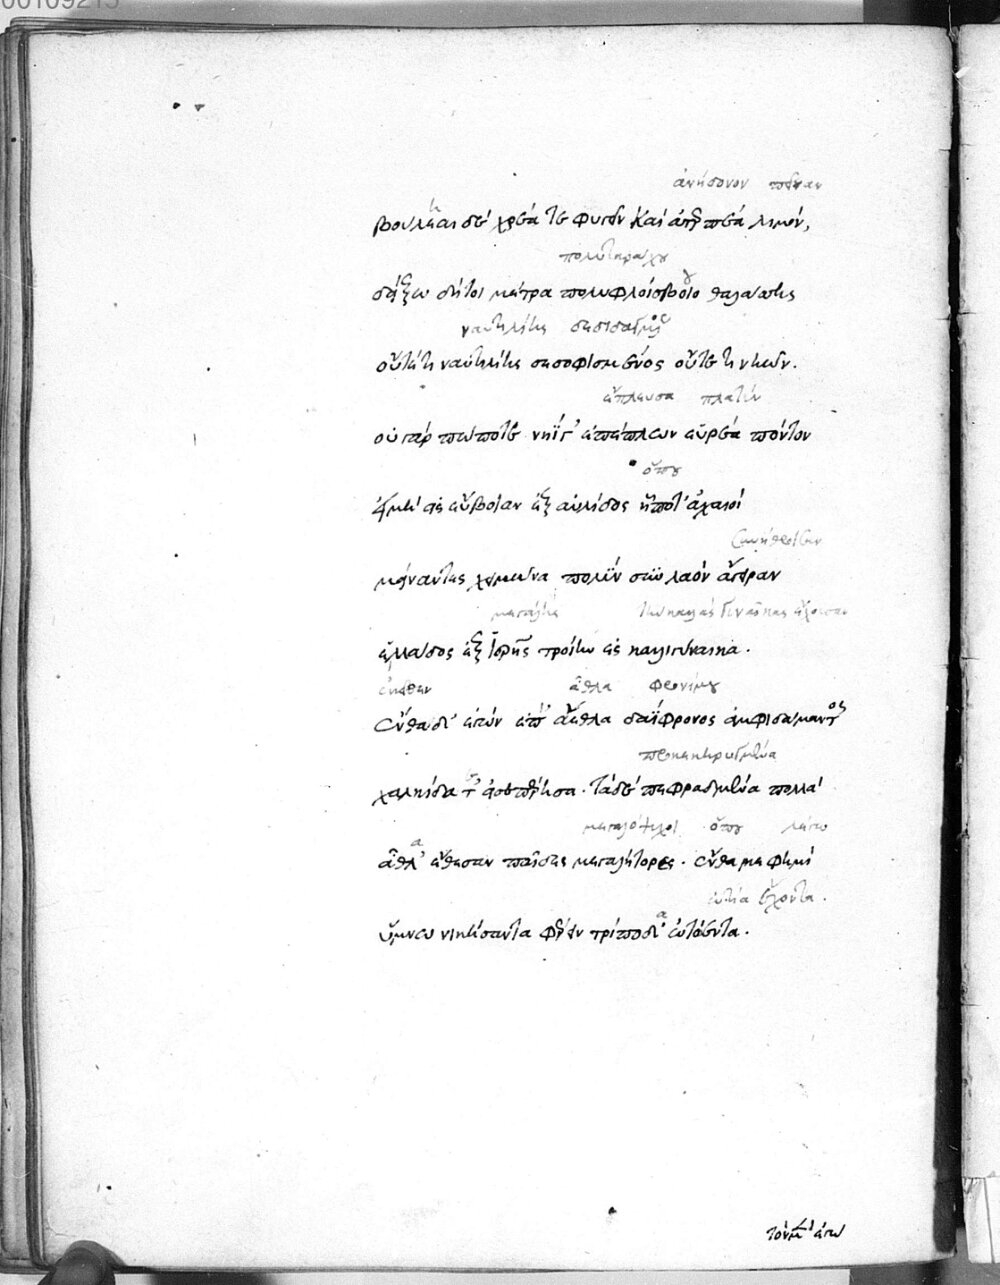 00109215
ἀνήδονον πεῖναν
βούληαι δὲ χρέα τε φυγεῖν καὶ ἀτερπέα λιμόν,
πολυταράχου
δείξω δή τοι μέτρα πολυφλοίσβοιο θαλάσσης
ναυτιλίης
οὔτέ τι ναυτιλίης σεσοφισμένος οὔτέ τι νηῶν.
ἔπλευσα πλατὺν
οὐ γάρ πώποτε νηΐ γ' ἐπέπλεων εὐρέα πόντον
ὅπου
εἰ μὴ ἐς εὔβοιαν ἐξ αὐλίδος ᾗ ποτ' ἀχαιοὶ
συνήθροισαν
μείναντες χειμῶνα πολὺν σὺν λαὸν ἄγειραν
μεγάλης καλὰς γυναῖκας ἔχουσαν
ἑλλάδος ἐξ ἱερῆς τροίην ἐς καλλιγύναικα.
ἆθλα φρονίμου
ἔνθα δ' ἐγὼν ἐπ' ἄεθλα δαΐφρονος ἀμφιδάμαντος
προκεκηρυγμένα
χαλκίδα τ' εἰσεπέρησα. τὰ δὲ πεφραδμένα πολλὰ
μεγαλόψυχοι ὅπου λέγω
ἆθλ' ἔθεσαν παῖδες μεγαλήτορες. ἔνθα με φημὶ
ὠτία ἔχοντα.
ὕμνῳ νικήσαντα φέρειν τρίποδα ὠτώεντα.
τὸν μὲν ἐγὼ